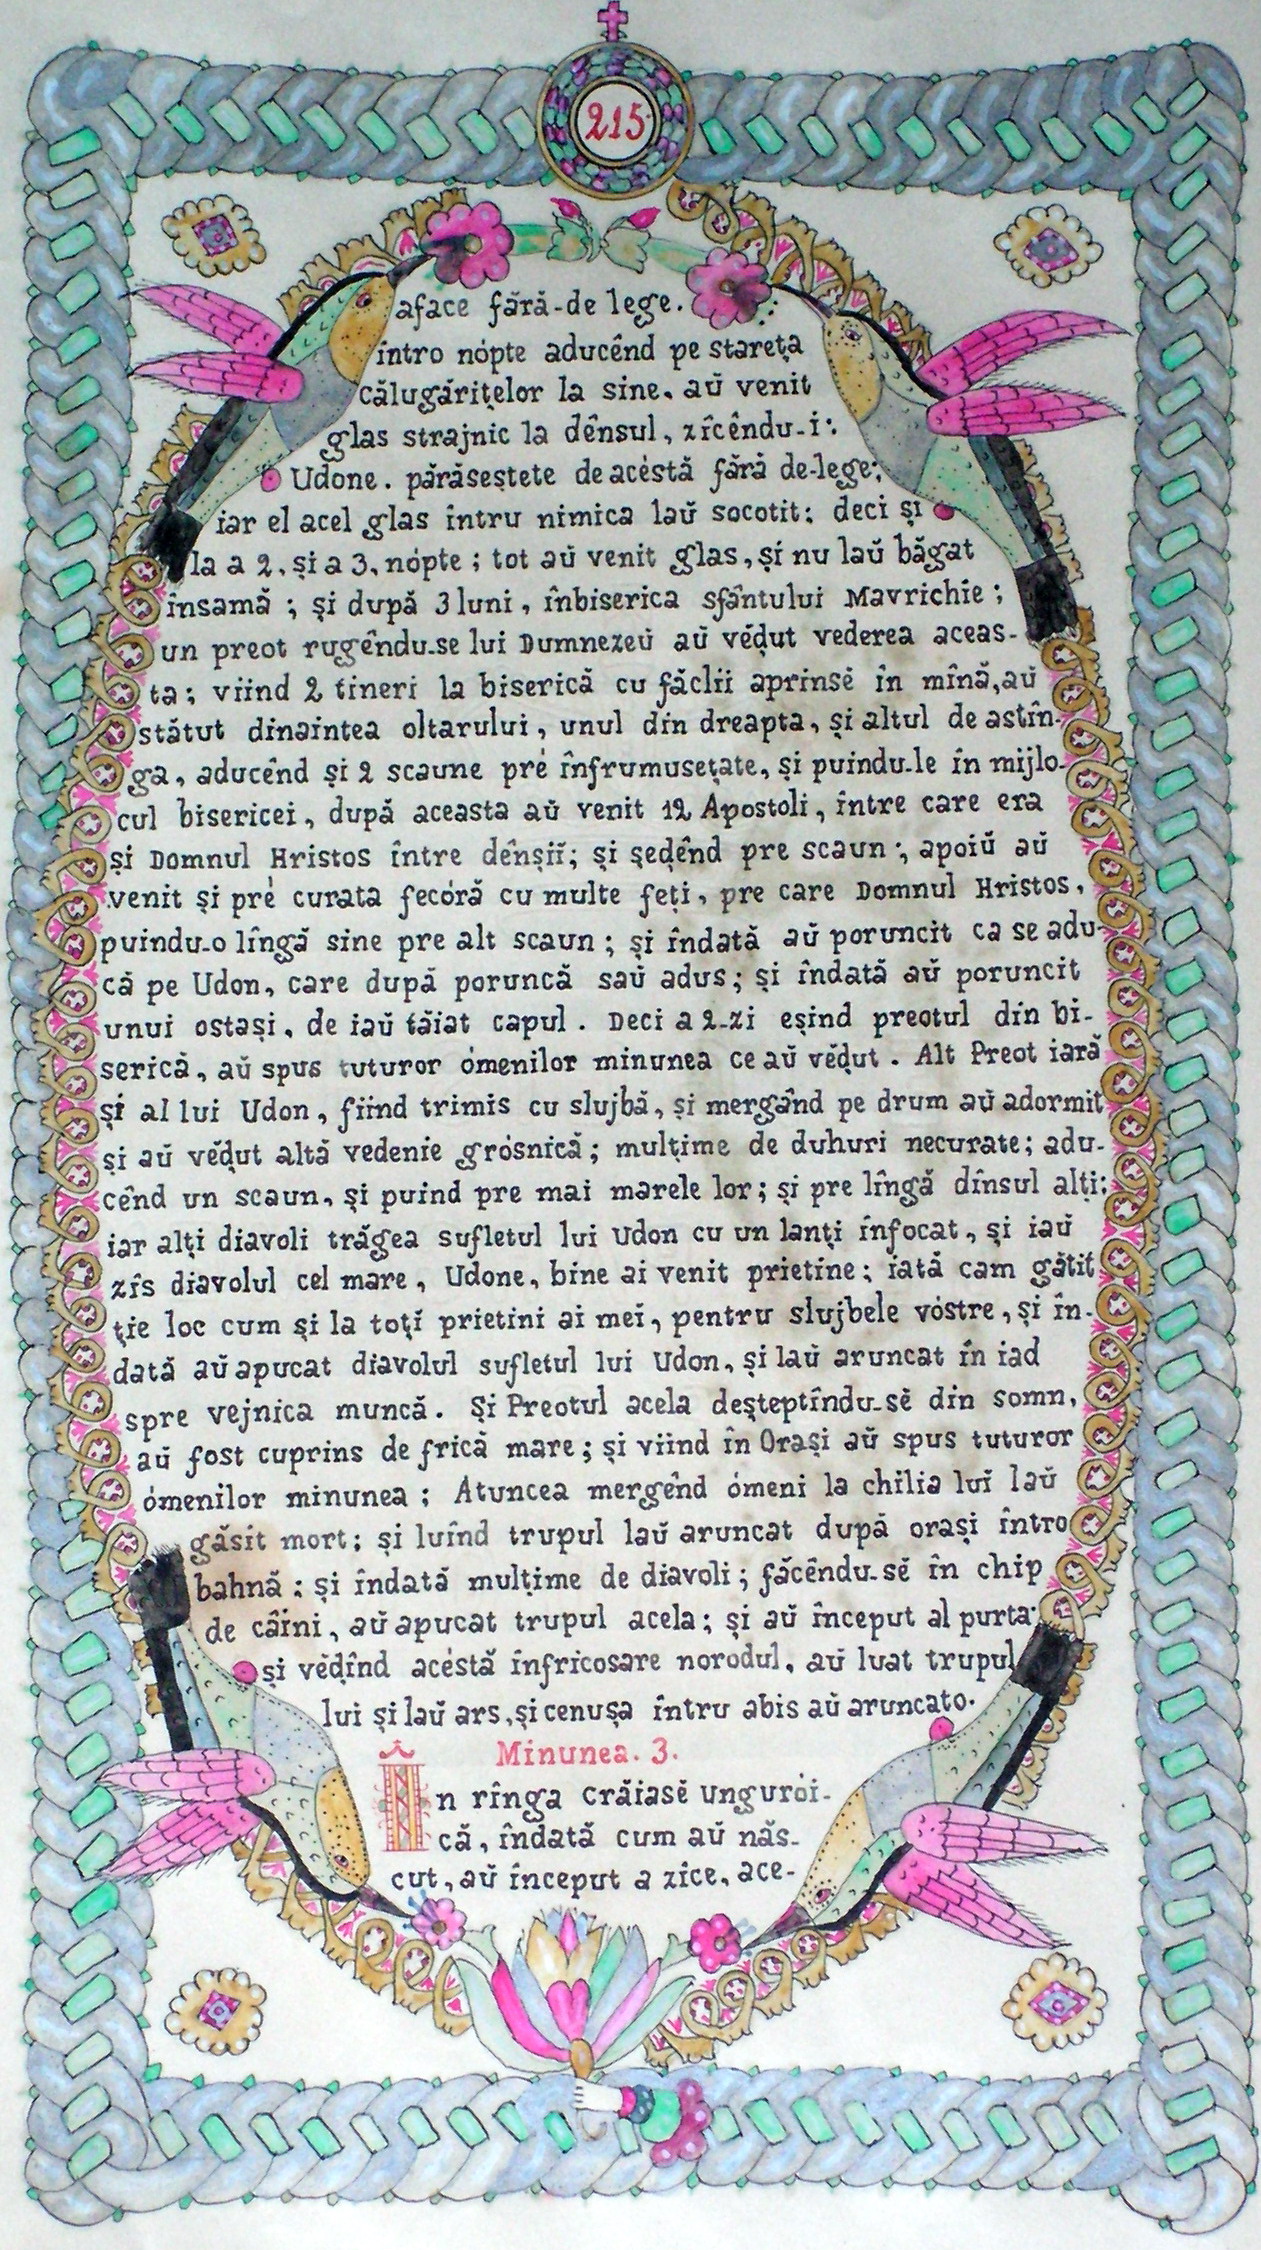 215
aface fără-de lege.
întro nópte aducênd pe stareța
călugărițelor la sine, aŭ venit
glas strajnic la dênsul, zîcêndu-i:
Udone. părăseștete de acéstă fără de-lege;
iar el acel glas întru nimica laŭ socotit: deci și
la a 2, și a 3, nópte; tot aŭ venit glas, și nu laŭ băgat
însamă; și după 3 luni, înbiserica sfântului Mavrichie;
un preot rugêndu-se lui Dumnezeŭ aŭ vĕḑut vederea aceas-
ta; viind 2 tineri la biserică cu făclii aprinsĕ în mînă, aŭ
stătut dinaintea oltarului, unul din dreapta, și altul de astîn-
ga, aducênd și 2 scaune pré înfrumusețate, și puindu-le în mijlo-
cul bisericei, după aceasta aŭ venit 12 Apostoli, între care era
și Domnul Hristos între dênșiĭ; și șeḑênd pre scaun; apoiŭ aŭ
venit și pré curata fecóră cu multe feți, pre care Domnul Hristos,
puindu-o lîngă sine pre alt scaun; și îndată aŭ poruncit ca se adu-
că pe Udon, care după poruncă saŭ adus; și îndată aŭ poruncit
unui ostași, de iaŭ tăiat capul. Deci a 2-zi eșind preotul din bi-
serică, aŭ spus tuturor ómenilor minunea ce aŭ vĕḑut. Alt Preot iară
și al lui Udon, fiind trimis cu slujbă, și mergând pe drum aŭ adormit
și aŭ vĕḑut altă vedenie grósnică; mulțime de duhuri necurate; adu-
cênd un scaun, și puind pre mai marele lor; și pre lîngă dînsul alți;
iar alți diavoli trăgea sufletul lui Udon cu un lanți înfocat, și iaŭ
zîs diavolul cel mare, Udone, bine ai venit prietine; iată cam gătit
ție loc cum și la toți prietini ai mei, pentru slujbele vóstre, și în-
dată aŭ apucat diavolul sufletul lui Udon, și laŭ aruncat în iad
spre vejnica muncă. Și Preotul acela deșteptîndu-sĕ din somn,
aŭ fost cuprins de frică mare; și viind în Orași aŭ spus tuturor
ómenilor minunea; Atuncea mergênd ómeni la chilia luĭ laŭ
găsit mort; și luînd trupul laŭ aruncat după orași întro
bahnă; și îndată mulțime de diavoli; făcêndu-sĕ în chip
de câini, aŭ apucat trupul acela; și aŭ început al purta;
și vĕḑînd acéstă înfricosare norodul, aŭ luat trupul
lui și laŭ ars, și cenușa întru abis aŭ aruncato.
Minunea. 3.
În rînga crăiasĕ unguroi-
că, îndată cum aŭ năs-
cut, aŭ început a zice, ace-